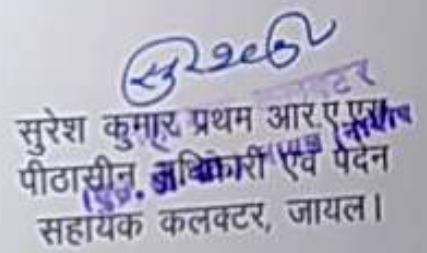 सुरेश कुमार प्रथम आर.ए.एस
पीठासीन अधिकारी एवं पदेन
सहायक कलक्टर, जायल।